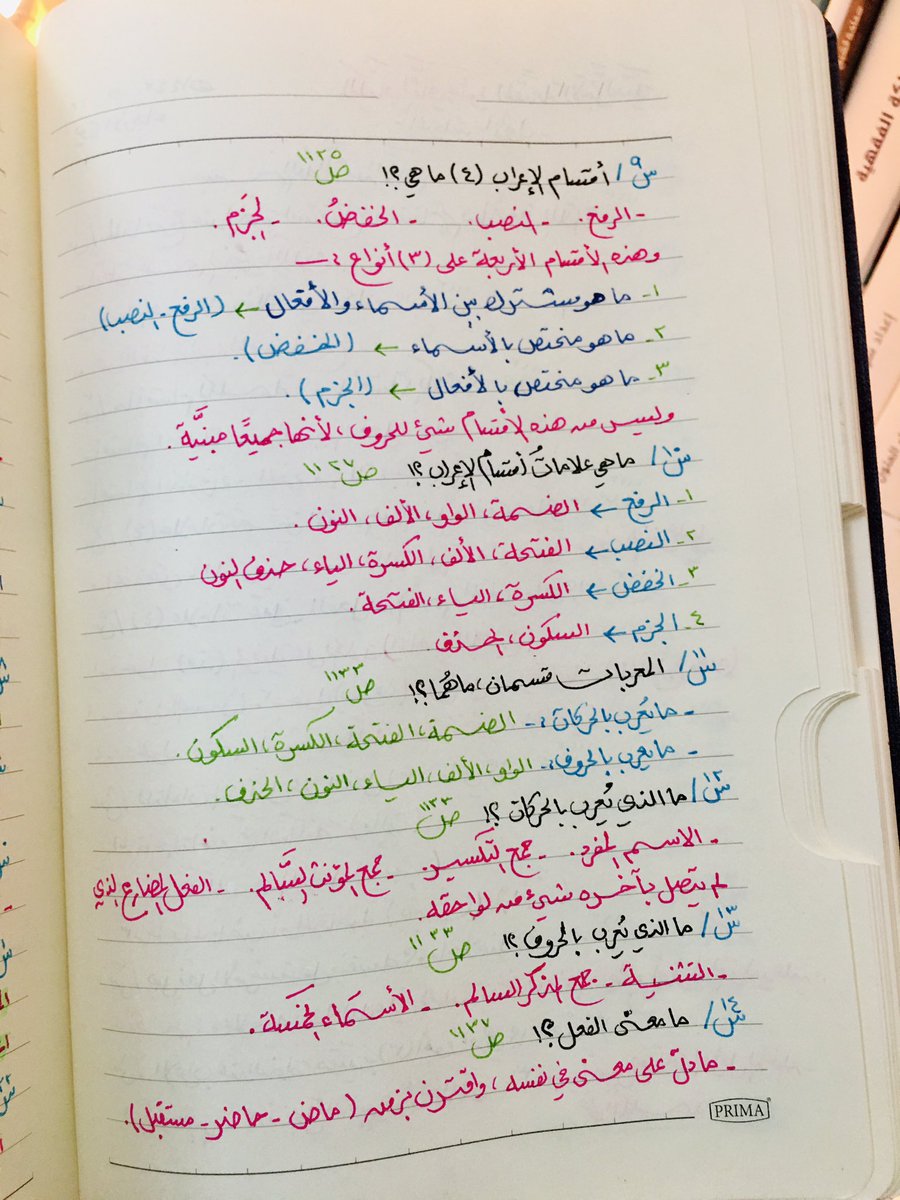 س٩/ أقسام الإعراب (٤) ما هي؟! ص١١٢٥
- الرفع. - النصب. - الخفضُ. - الجَزم.
وهذه الأقسام الأربعة على (٣) أنواع :-
١- ما هو مشترك بين الأسماء والأفعال ← (الرفع - النصب)
٢- ما هو مختص بالأسماء ← (الخفض).
٣- ما هو مختص بالأفعال ← (الجزم).
وليس من هذه الأقسام شيئ للحروف، لأنها جميعًا مبنيَّة.
س١٠/ ما هي علاماتُ أقسام الإعراب؟! ص١١٢٧
١- الرفع ← الضمة، الواو، الألف، النون.
٢- النصب ← الفتحة، الألف، الكسرة، الياء، حذف النون
٣- الخفض ← الكسرة، الياء، الفتحة.
٤- الجزم ← السكون، الحذف.
س١١/ المعربات قسمان، ما هُما؟! ص١١٣٣
- ما يُعرب بالحركات :- الضمة، الفتحة، الكسرة، السكون.
- ما يعرب بالحروف :- الواو، الألف، الياء، النون، الحذف.
س١٢/ ما الذي يُعرب بالحركات؟! ص١١٣٣
- الاسم المفرد. - جمع التَّكسير. - جمع المؤنث السَّالم. - الفعل المضارع الذي
لم يتصل بآخره شيئ من لواحقه.
س١٣/ ما الذي يُعرب بالحروف؟! ص١١٣٣
- التثنية - جمع المذكر السالم. - الأسماء الخمسة.
س١٤/ ما معنى الفعل؟! ص١١٣٧
- ما دلّ على معنى في نفسه، واقترن بزمن (ماض - حاضر - مستقبل).
PRIMA
كة الفقهية